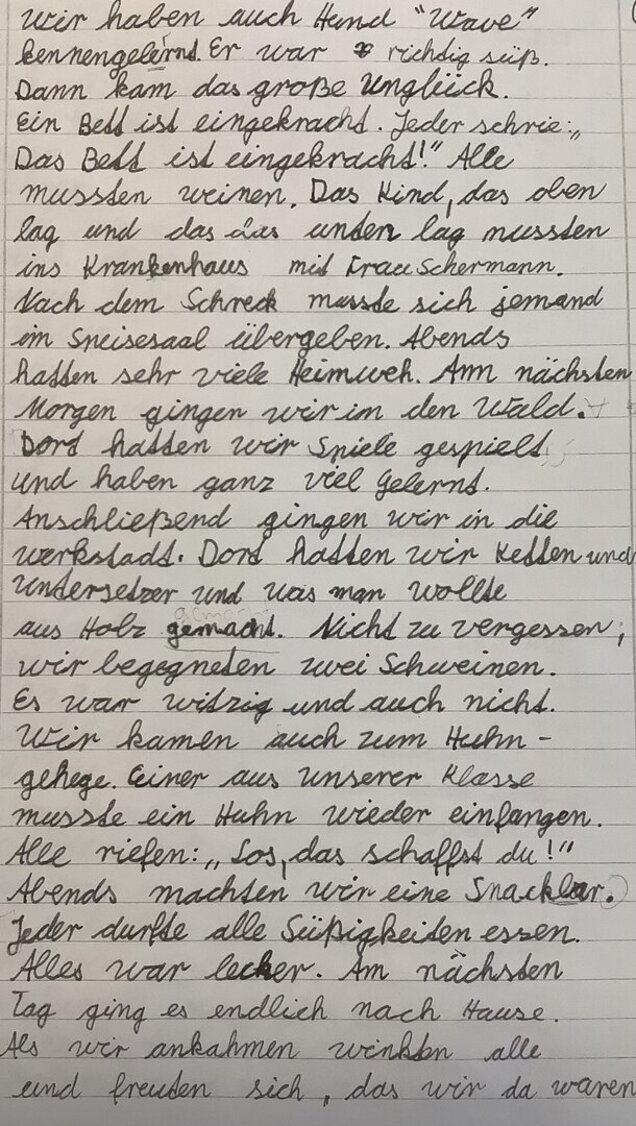 Wir haben auch Hund "Wave"
kennengelernt. Er war richtig süß.
Dann kam das große Unglück.
Ein Bett ist eingekracht. Jeder schrie: „
Das Bett ist eingekracht!" Alle
mussten weinen. Das Kind, das oben
lag und das das unten lag mussten
ins Krankenhaus mit Frau Schermann.
Nach dem Schreck musste sich jemand
im Speisesaal übergeben. Abends
hatten sehr viele Heimweh. Am nächsten
Morgen gingen wir im den Wald.
Dort hatten wir Spiele gespielt
und haben ganz viel Gelernt.
Anschließend gingen wir in die
werkstadt. Dort hatten wir Ketten und
Untersetzer und was man wollte
aus Holz gemacht. Nicht zu vergessen,
wir begegneten zwei Schweinen.
Es war witzig und auch nicht.
Wir kamen auch zum Huhn-
gehege. Einer aus unserer Klasse
musste ein Huhn wieder einfangen.
Alle riefen: „Los, das schaffst du!"
Abends machten wir eine Snackbar.
Jeder durfte alle Süßigkeiten essen.
Alles war lecker. Am nächsten
Tag ging es endlich nach Hause.
Als wir ankahmen winkten alle
und freuten sich, das wir da waren